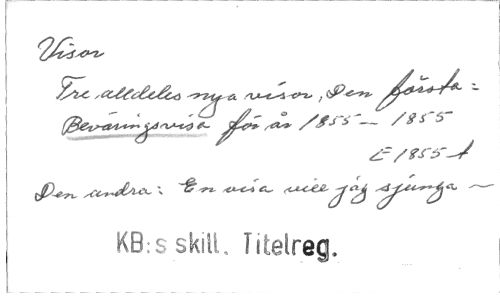 Visor
Tre alldeles nya visor, Den första:
Beväringsvisa för år 1855 — 1855
E 1855 t
Den andra: En visa vill jag sjunga —
KB:s skill. Titelreg.